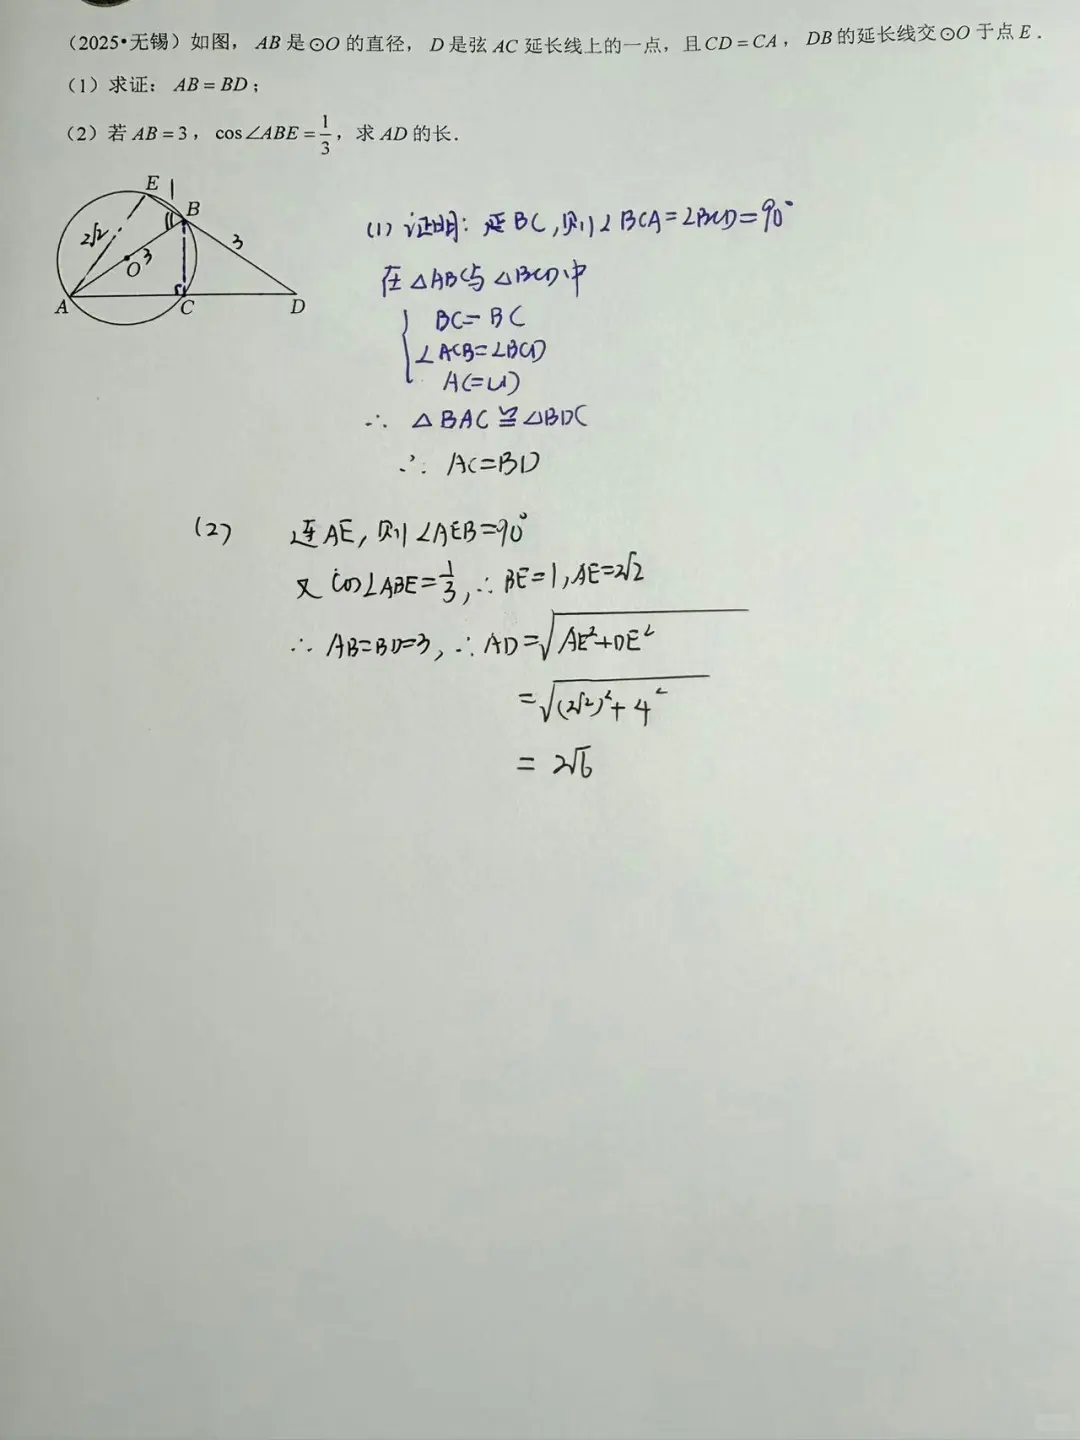 （2025•无锡）如图，AB是⊙O的直径，D是弦AC延长线上的一点，且CD=CA，DB的延长线交⊙O于点E．
（1）求证：AB=BD；
（2）若AB=3，cos∠ABE=1/3，求AD的长．
E
1
B
2√2
3
O
3
A
C
D
(1) 证明：连BC，则∠BCA=∠BCD=90°
在△ABC与△BCD中
BC=BC
∠ACB=∠BCD
AC=CD
∴ △BAC≌△BDC
∴ AC=BD
(2) 连AE，则∠AEB=90°
又cos∠ABE=1/3，∴BE=1，AE=2√2
∴ AB=BD=3，∴AD=√(AE²+DE²)
=√((2√2)²+4²)
= 2√6